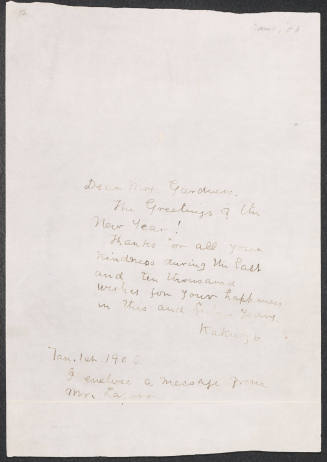 Dear Mrs. Gardner.
The Greetings of the
New Year!
Thanks for all your
kindness during the last
and ten thousand
wishes for your happiness
in this and years
Kakuzo
Jan. 1st 190
I enclose a message from
Mr.